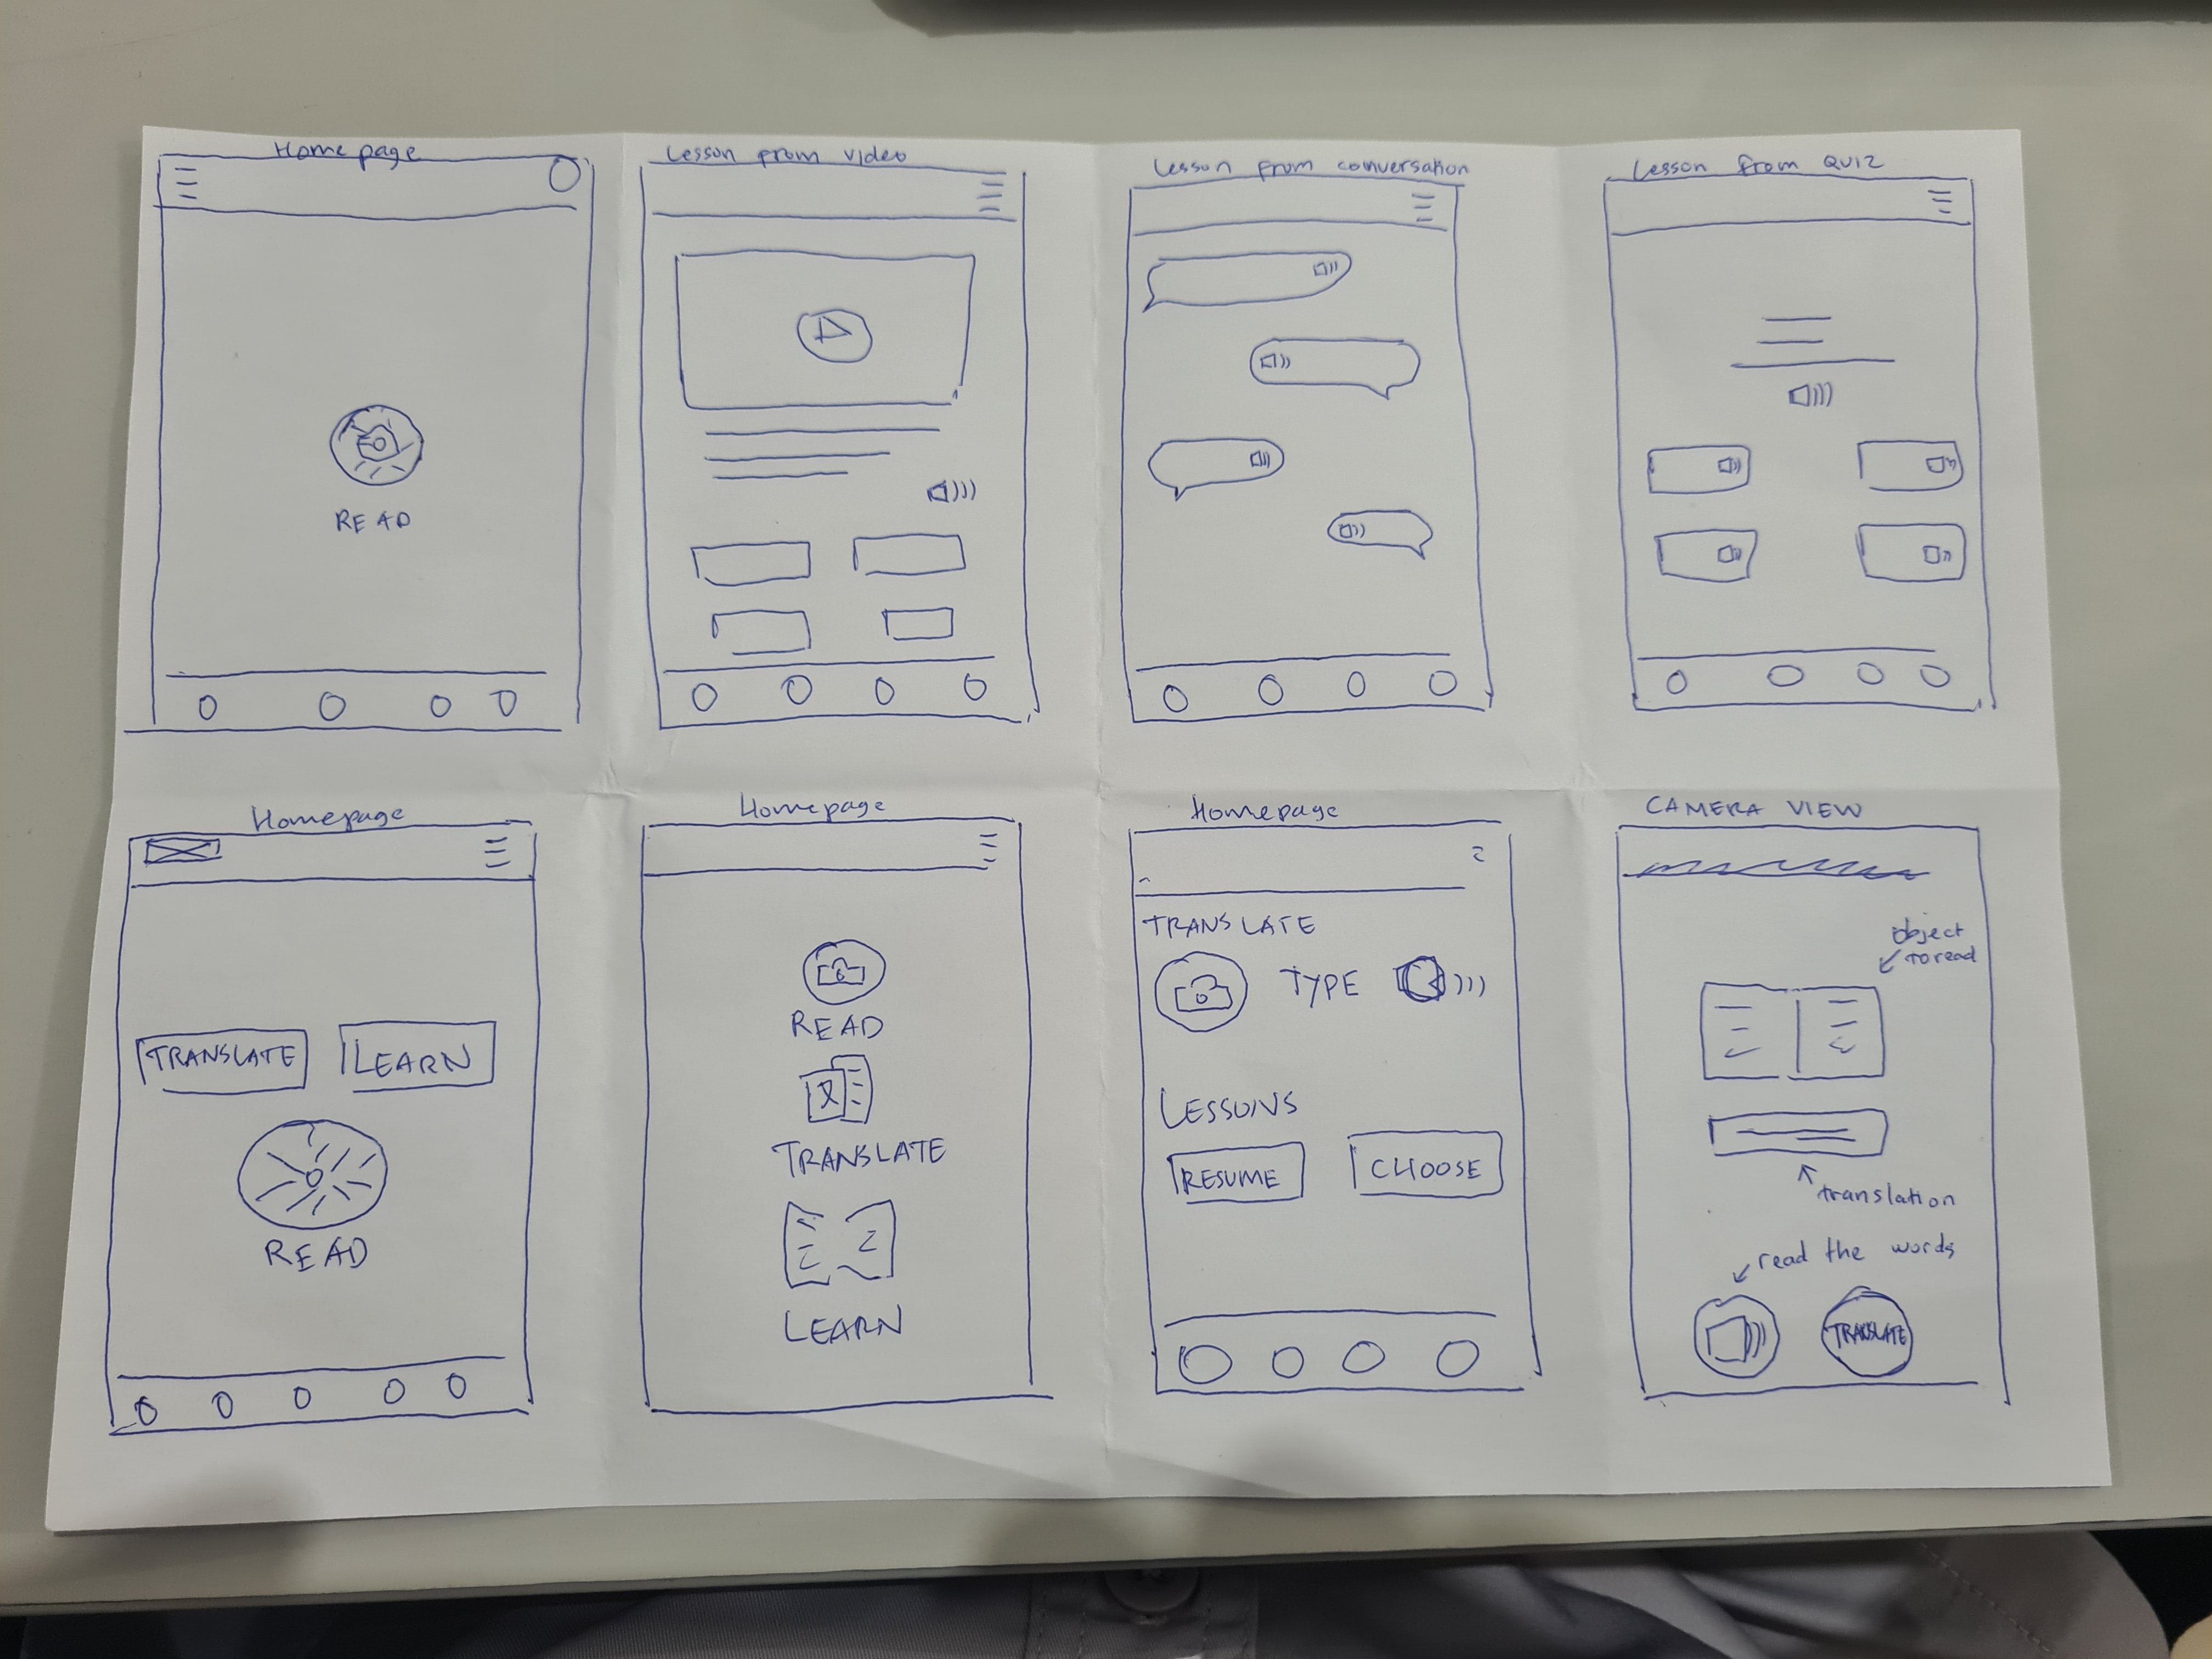 Homepage
READ
Lesson from video
Lesson from conversation
Lesson from QUIZ
Homepage
TRANSLATE
LEARN
READ
Homepage
READ
TRANSLATE
LEARN
Homepage
TRANSLATE
TYPE
LESSONS
RESUME
CHOOSE
CAMERA VIEW
object
to read
translation
read the words
TRANSLATE